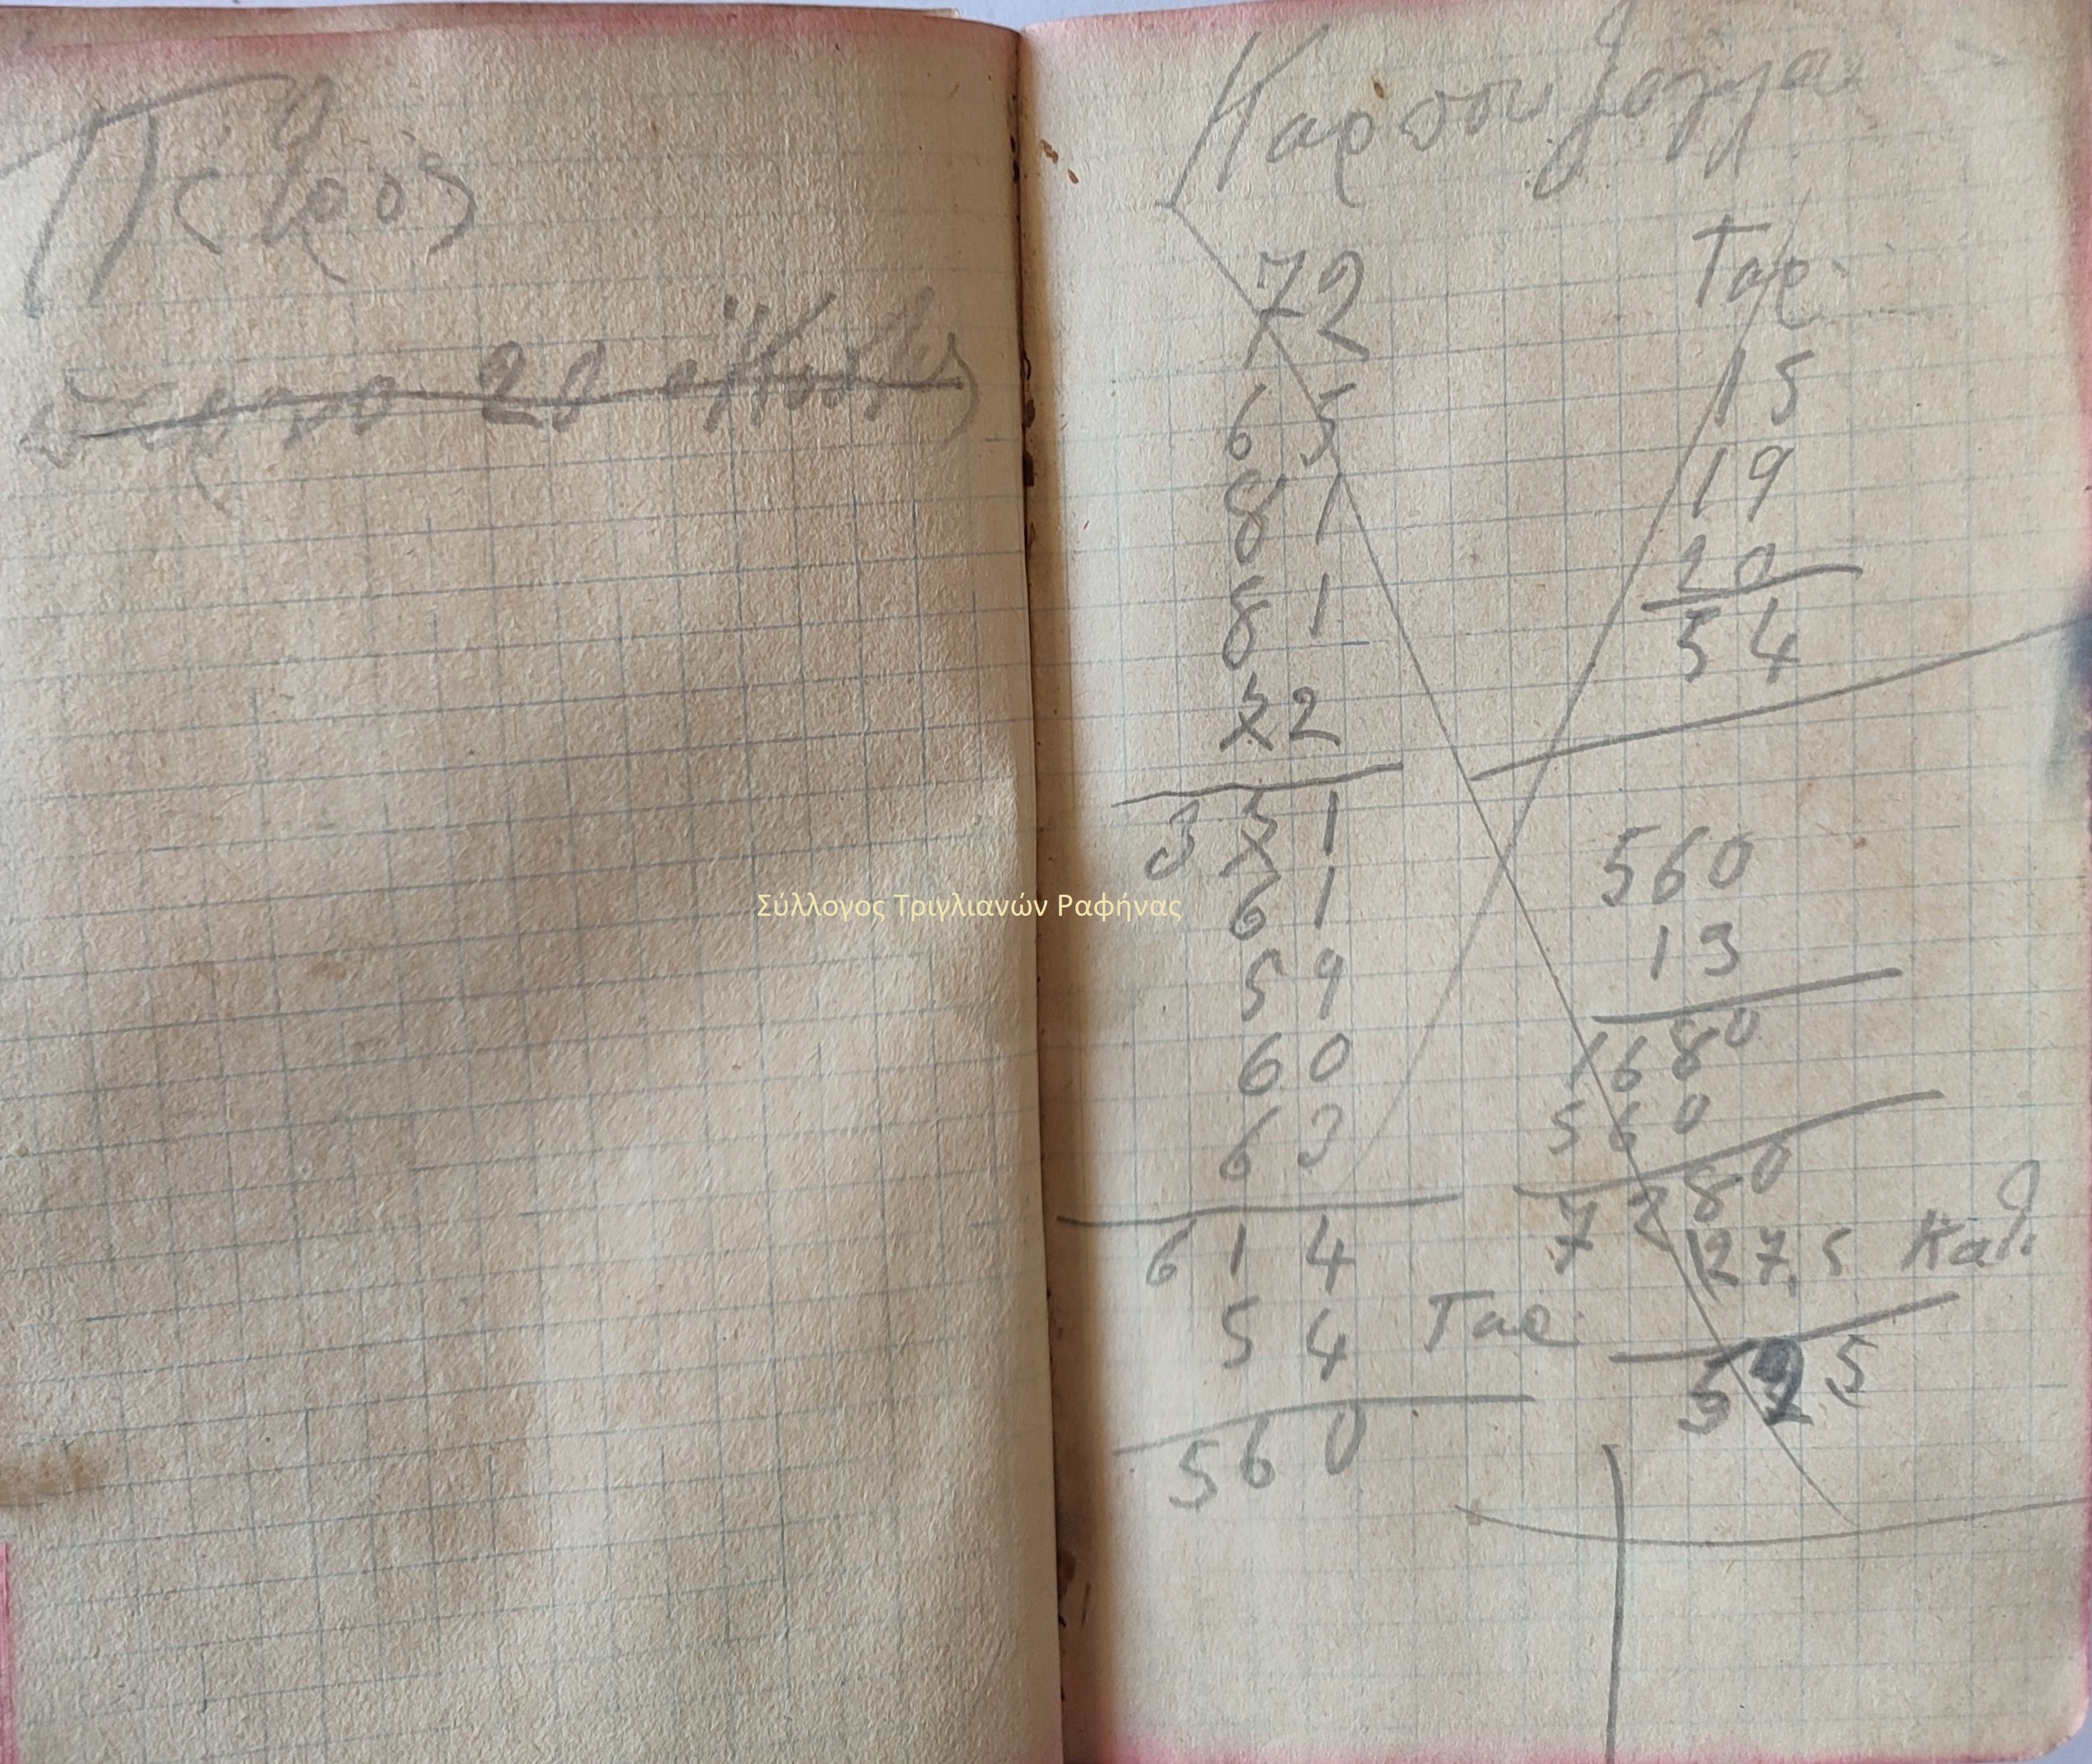 Πέτρος
20
Καρπουζογλα
72
65
81
81
52
351
61
59
60
63
614
54 Ταρ.
560
Ταρ.
15
19
20
54
560
13
1680
560
7280
127,5 Καλ
525
Σύλλογος Τριγλιανών Ραφήνας